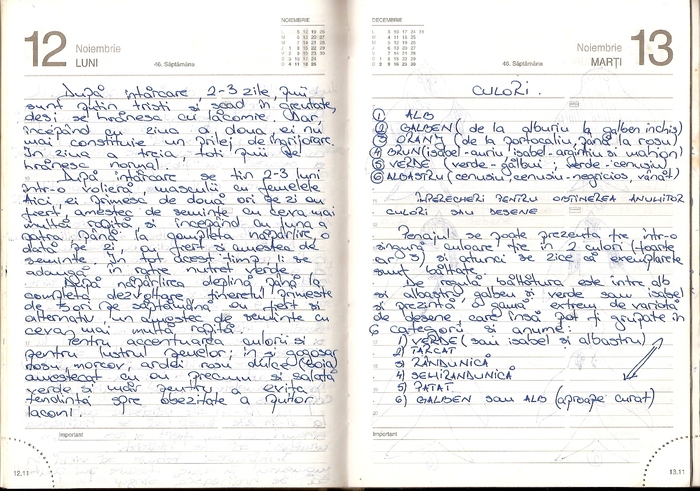 12
Noiembrie
LUNI
46. Săptămâna
NOIEMBRIE
După întărcare, 2-3 zile, puii
sunt puțin triști și scad în greutate,
deși se hrănesc cu lăcomie. Dar,
începând cu ziua a doua ei nu
mai constituie un prilej de îngrijorare.
În ziua a treia, toți puii se
hrănesc normal.
După întărcare se țin 2-3 luni
într-o volieră, masculii cu femelele
Aici, ei primesc de două ori pe zi ou
fiert, amestec de semințe cu ceva mai
multă rapiță și începând cu luna a
patra până la completa năpârlire o
dată pe zi, ou fiert și amestec de
semințe. În tot acest timp, li se
adaugă în rație nutreț verde.
După năpârlirea deplină până la
completa dezvoltare, tineretul primește
de 3 ori pe săptămână ou fiert și
alternativ un amestec de semințe cu
ceva mai multă rapiță.
Pentru accentuarea culorii și
pentru lustrul penelor; in și gogoșar
roșu morcov, ardei roșu dulce (boia)
amestecat cu ou precum și salată
verde și măr pentru a evita
tendința spre obezitate a puilor
lacomi.
Important
12.11
DECEMBRIE
46. Săptămâna
Noiembrie
MARȚI
13
CULORI.
1 ALB
2 GALBEN (de la alburiu la galben închis)
3 ORANJ (de la portocaliu până la roșu)
4 BRUN (isabel-auriu, isabel-argintiu și maron)
5 VERDE (verde-gălbui, verde-cenușiu)
6 ALBASTRU (cenușiu, cenușiu-negricios, vânăt)
ÎMPERECHERI PENTRU OBȚINEREA ANUMITOR
CULORI SAU DESENE
Penajul se poate prezenta fie într-o
singură culoare fie în 2 culori (foarte
rar 3) și atunci se zice că exemplarele
sunt bălțate.
De regulă bălțătura este între alb
și albastru, galben și verde sau isabel
și prezintă o gamă extrem de variată
de desene, care însă pot fi grupate în
6 categorii și anume:
1) VERDE (sau isabel și albastru)
2) TĂRCAT
3) RÂNDUNICĂ
4) SEMIRÂNDUNICĂ
5) PĂTAT
6) GALBEN sau ALB (aproape curat)
Important
13.11